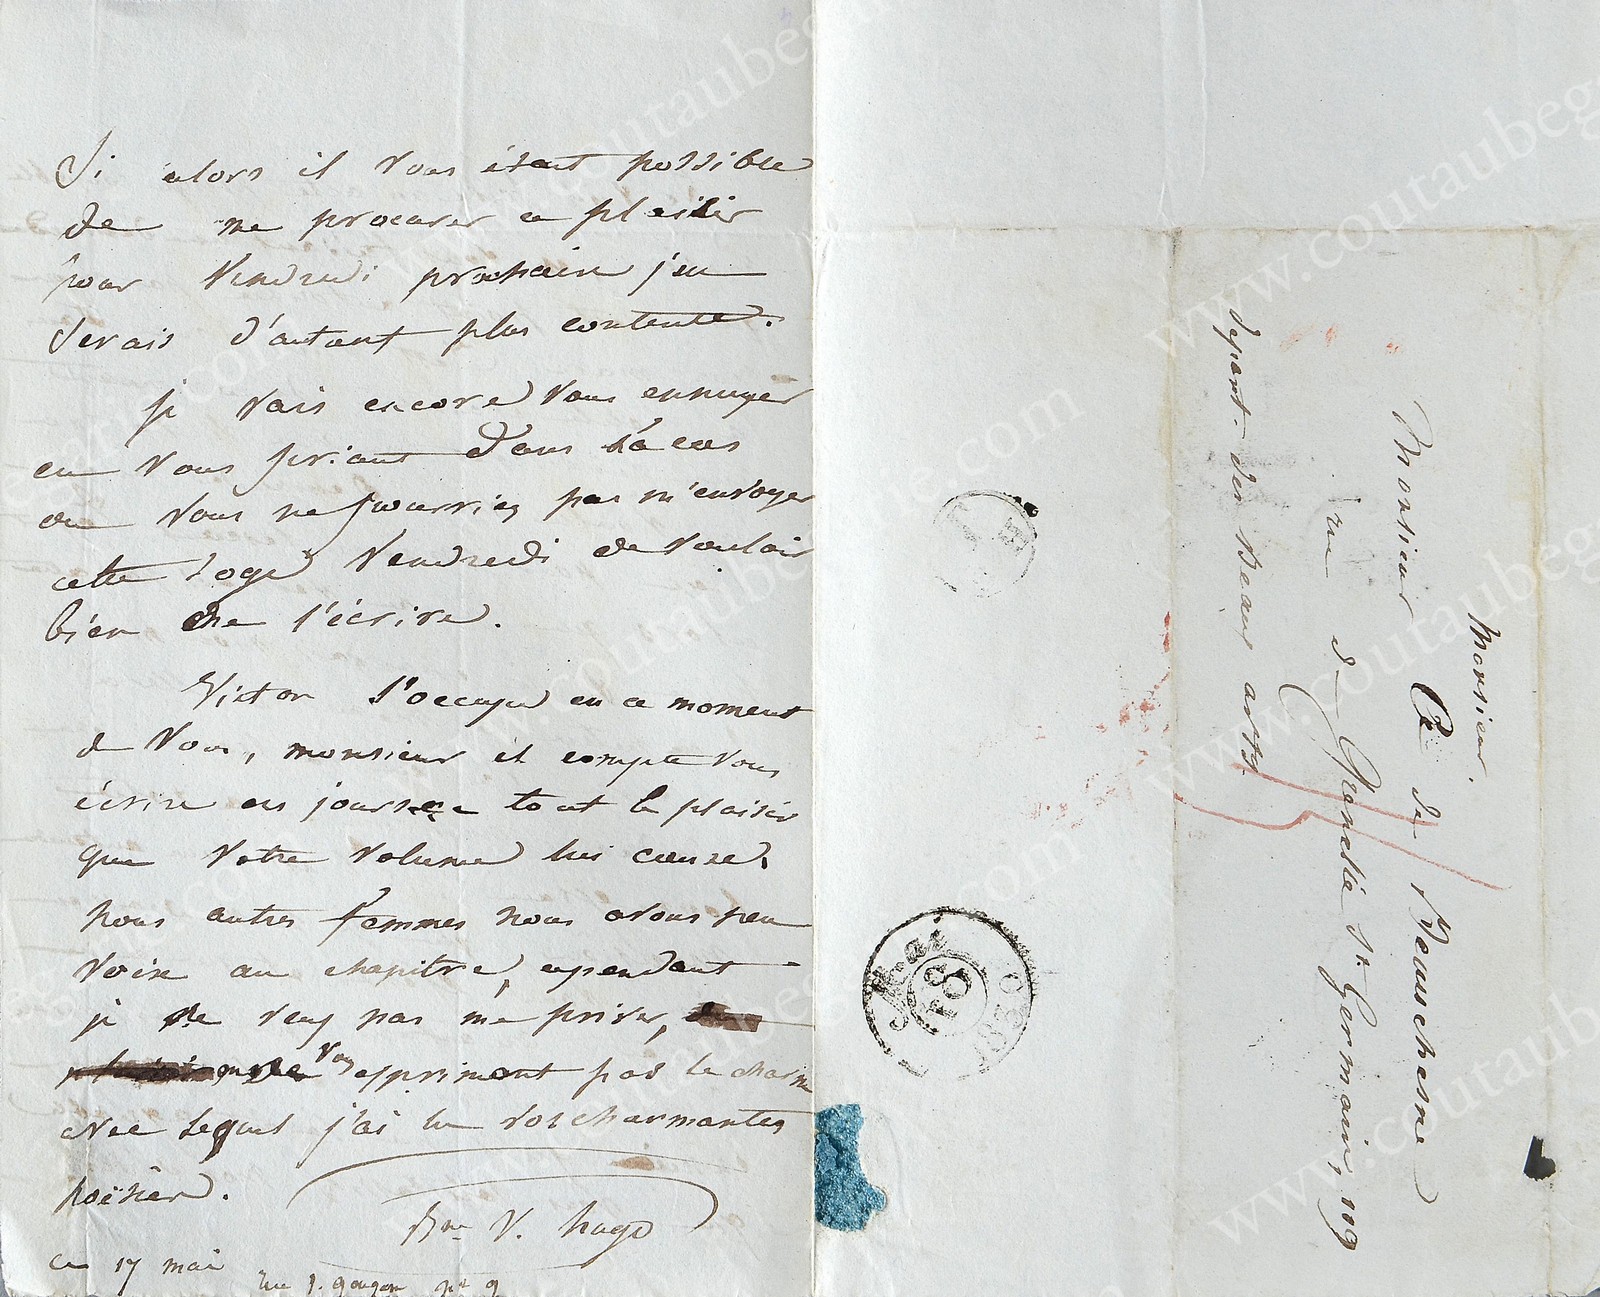 Si alors il vous était possible
de me procurer ce plaisir
pour vendredi prochain j'en
serais d'autant plus contente.
je vais encore vous ennuyer
en vous priant dans le cas
ou vous ne pourriez pas m'envoyer
cette loge vendredi de vouloir
bien me l'écrire.
Victor s'occupe en ce moment
de vous, monsieur et compte vous
écrire ces jours ce tout le plaisir
que votre volume lui cause.
nous autres femmes nous avons peu
voix au chapitre, cependant
je ne veux pas me priver,
vous exprimant pas le charme
avec lequel j'ai lu vos charmantes
poësies.
Bne V. hugo
ce 17 mai
rue J. goujon no 9
Monsieur.
Monsieur A. de Beauchesne
rue de Grenelle St. Germain, 119
depart. des Beaux arts
Mai
18
1830
www.coutaubegarie.com